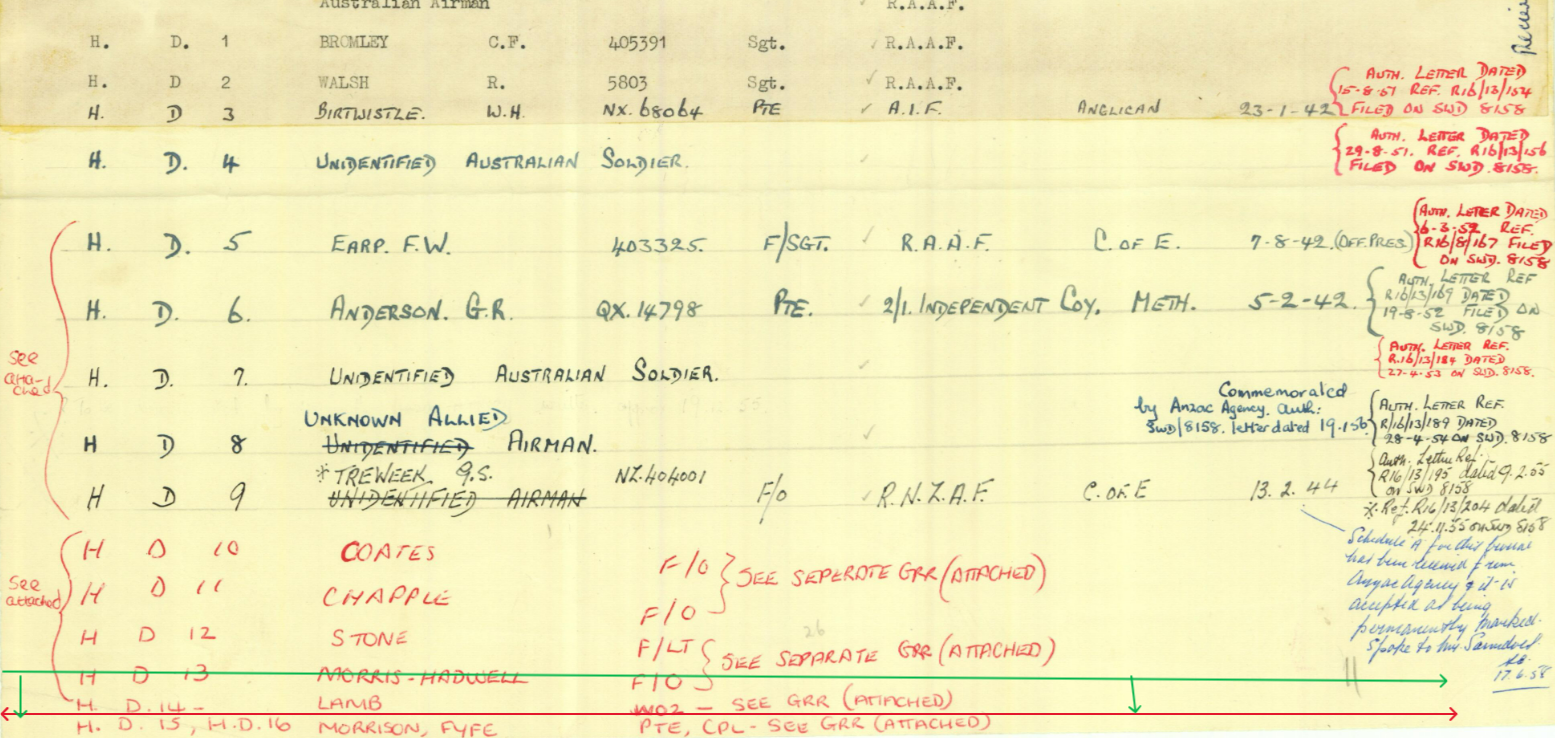 Australian Airman R.A.A.F.
H. D. 1 BROMLEY C.F. 405391 Sgt. ✓ R.A.A.F.
H. D 2 WALSH R. 5803 Sgt. ✓ R.A.A.F.
H. D 3 BIRTWISTLE. W.H. NX.68064 PTE ✓ A.I.F. ANGLICAN 23-1-42
AUTH. LETTER DATED
15-8-51 REF. R16/13/154
FILED ON SWD 8158
H. D. 4 UNIDENTIFIED AUSTRALIAN SOLDIER. ✓
AUTH. LETTER DATED
29-8-51. REF. R16/13/156
FILED ON SWD. 8158.
H. D. 5 EARP. F.W. 403325. F/SGT. ✓ R.A.A.F. C. OF E. 7-8-42. (OFF. PRES)
AUTH. LETER DATED
6-3-52 REF.
R16/8/167 FILED
ON SWD. 8158
H. D. 6. ANDERSON. G.R. QX.14798 PTE. ✓ 2/1. INDEPENDENT COY. METH. 5-2-42.
AUTH. LETTER REF
R16/13/169 DATED
19-8-52 FILED ON
SWD. 8158
see
atta-
ched
H. D. 7. UNIDENTIFIED AUSTRALIAN SOLDIER. ✓
AUTH. LETTER REF.
R.16/13/184 DATED
27-4-53 ON SWD. 8158.
UNKNOWN ALLIED
H D 8 UNIDENTIFIED AIRMAN. ✓
Commemorated
by Anzac Agency. auth:
SWD/8158. letter dated 19.1.56
AUTH. LETTER REF.
R/16/13/189 DATED
28-4-54 ON SWD. 8158
* TREWEEK. G.S. NZ.404001
H D 9 UNIDENTIFIED AIRMAN F/O ✓ R.N.Z.A.F. C. OF E 13. 2. 44
Auth. Letter Ref.
R16/13/195 dated 9.2.55
on SWD 8158
* Ref. R16/13/204 dated
24.11.55 on SWD 8158
Schedule A for this burial
has been received from
Anzac Agency & it is
accepted as being
permanently marked.
Spoke to Mr.
17.6.58
see
attached
H D 10 COATES F/O
H D 11 CHAPPLE F/O
SEE SEPERATE GRR (ATTACHED)
H D 12 STONE F/LT
H D 13 MORRIS-HADWELL F/O
SEE SEPARATE GRR (ATTACHED)
26
H. D. 14 - LAMB WO2 - SEE GRR (ATTACHED)
H. D. 15, H.D.16 MORRISON, FYFE PTE, CPL - SEE GRR (ATTACHED)